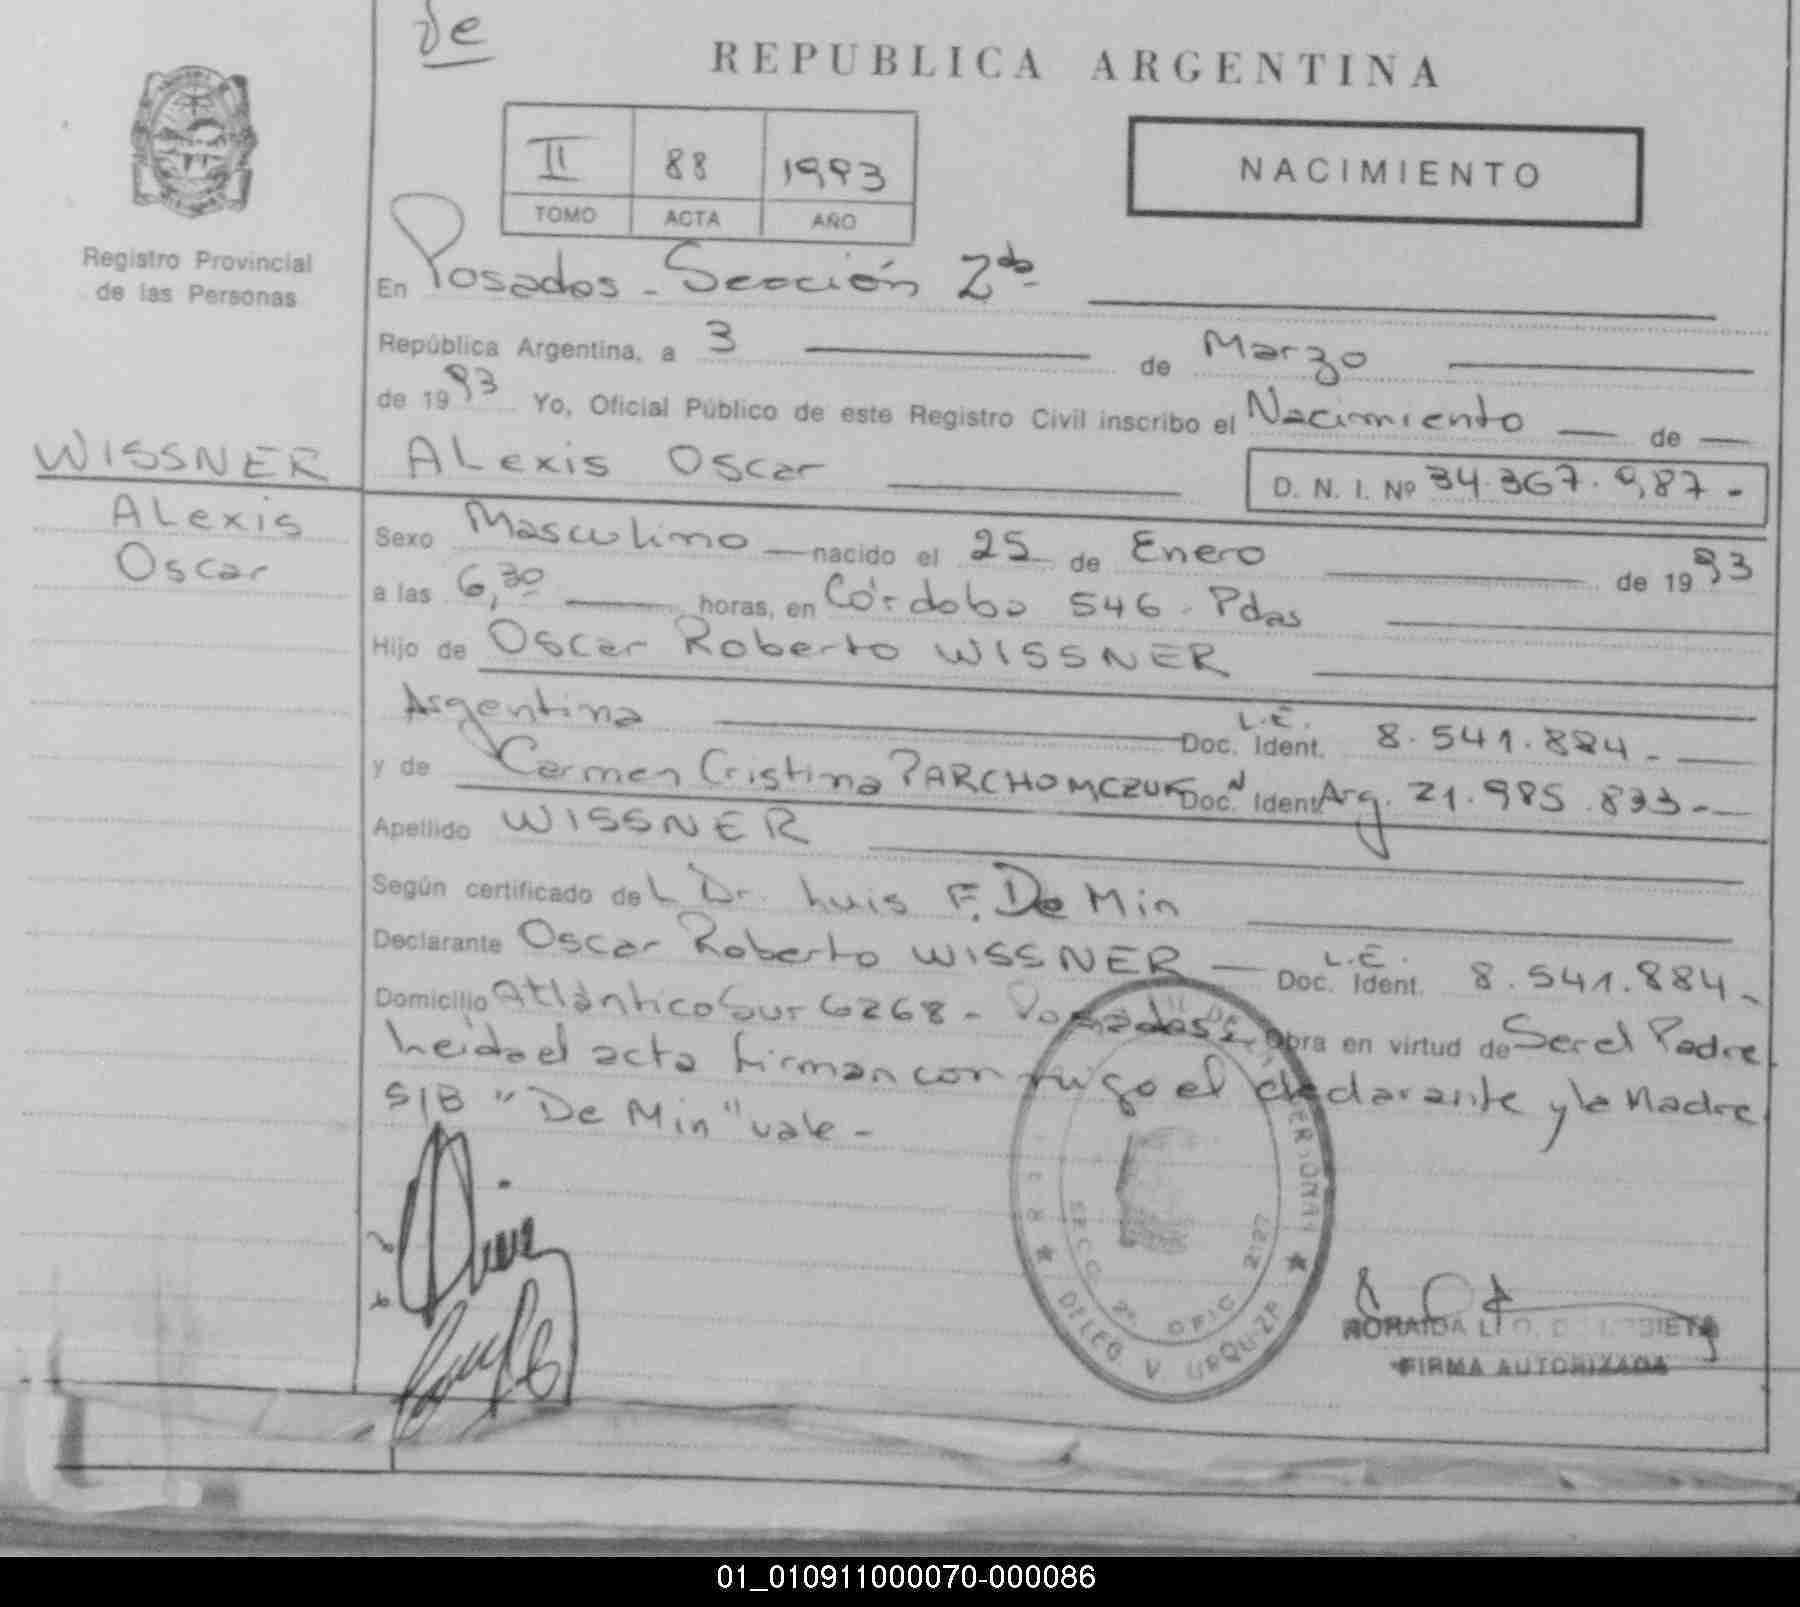 de
REPUBLICA ARGENTINA
II 88 1993
TOMO ACTA AÑO
NACIMIENTO
Registro Provincial
de las Personas
En Posadas - Sección 2da
República Argentina, a 3 de Marzo
de 1993 Yo, Oficial Público de este Registro Civil inscribo el Nacimiento de
WISSNER Alexis Oscar D. N. I. Nº 34.367.987.-
Alexis
Oscar
Sexo Masculino nacido el 25 de Enero de 1993
a las 6,30 horas, en Córdoba 546 - Pdas
Hijo de Oscar Roberto WISSNER
Argentina L.E. Doc. Ident. 8.541.884.-
y de Carmen Cristina PARCHOMCZUK Doc. N Ident. Arg. 21.985.833.-
Apellido WISSNER
Según certificado del Dr. Luis F. De Min
Declarante Oscar Roberto WISSNER L.E. Doc. Ident. 8.541.884.-
Domicilio Atlántico Sur 6268 - Posadas Obra en virtud de Ser el Padre.
Leida el acta firman conmigo el declarante y la Madre.
S/B "De Min" vale -
SECC. 2º OFIC 2127
DELEG. V. URQUIZA
FIRMA AUTORIZADA
01_010911000070-000086